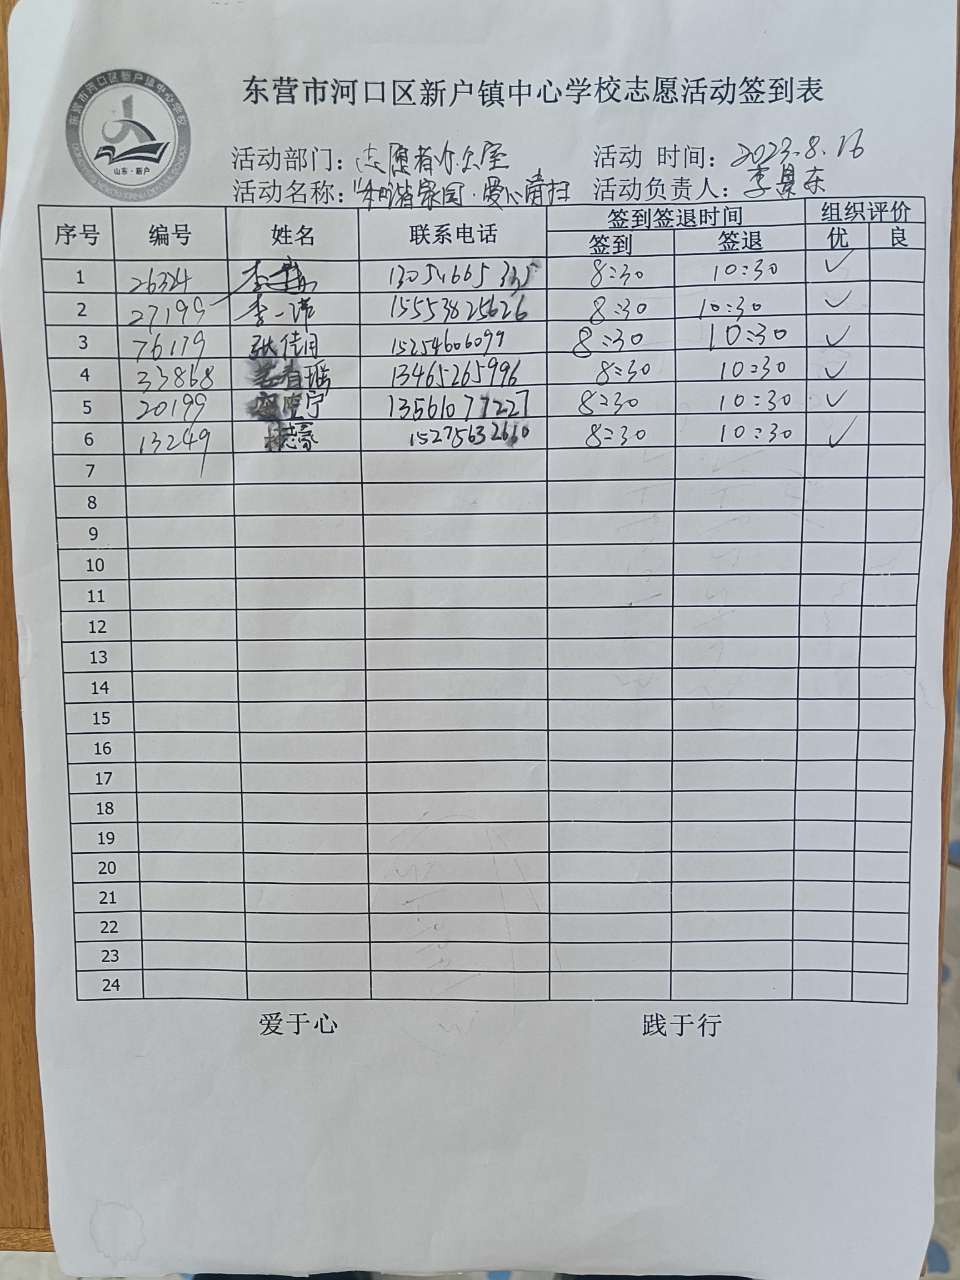 东营市河口区新户镇中心学校
山东·新户
东营市河口区新户镇中心学校志愿活动签到表
活动部门：志愿者办公室 活动 时间：2023.8.16
活动名称："和谐家园·爱心清扫 活动负责人：李景东
序号 编号 姓名 联系电话 签到签退时间 组织评价
签到 签退 优 良
1 26324 李 8:30 10:30 ✓
2 27199 李一诺 15553825626 8:30 10:30 ✓
3 76179 张佳月 15254606099 8:30 10:30 ✓
4 33868 13465265996 8:30 10:30 ✓
5 20199 宁 13561077227 8:30 10:30 ✓
6 13249 林志豪 15275632610 8:30 10:30 ✓
7
8
9
10
11
12
13
14
15
16
17
18
19
20
21
22
23
24
爱于心 践于行